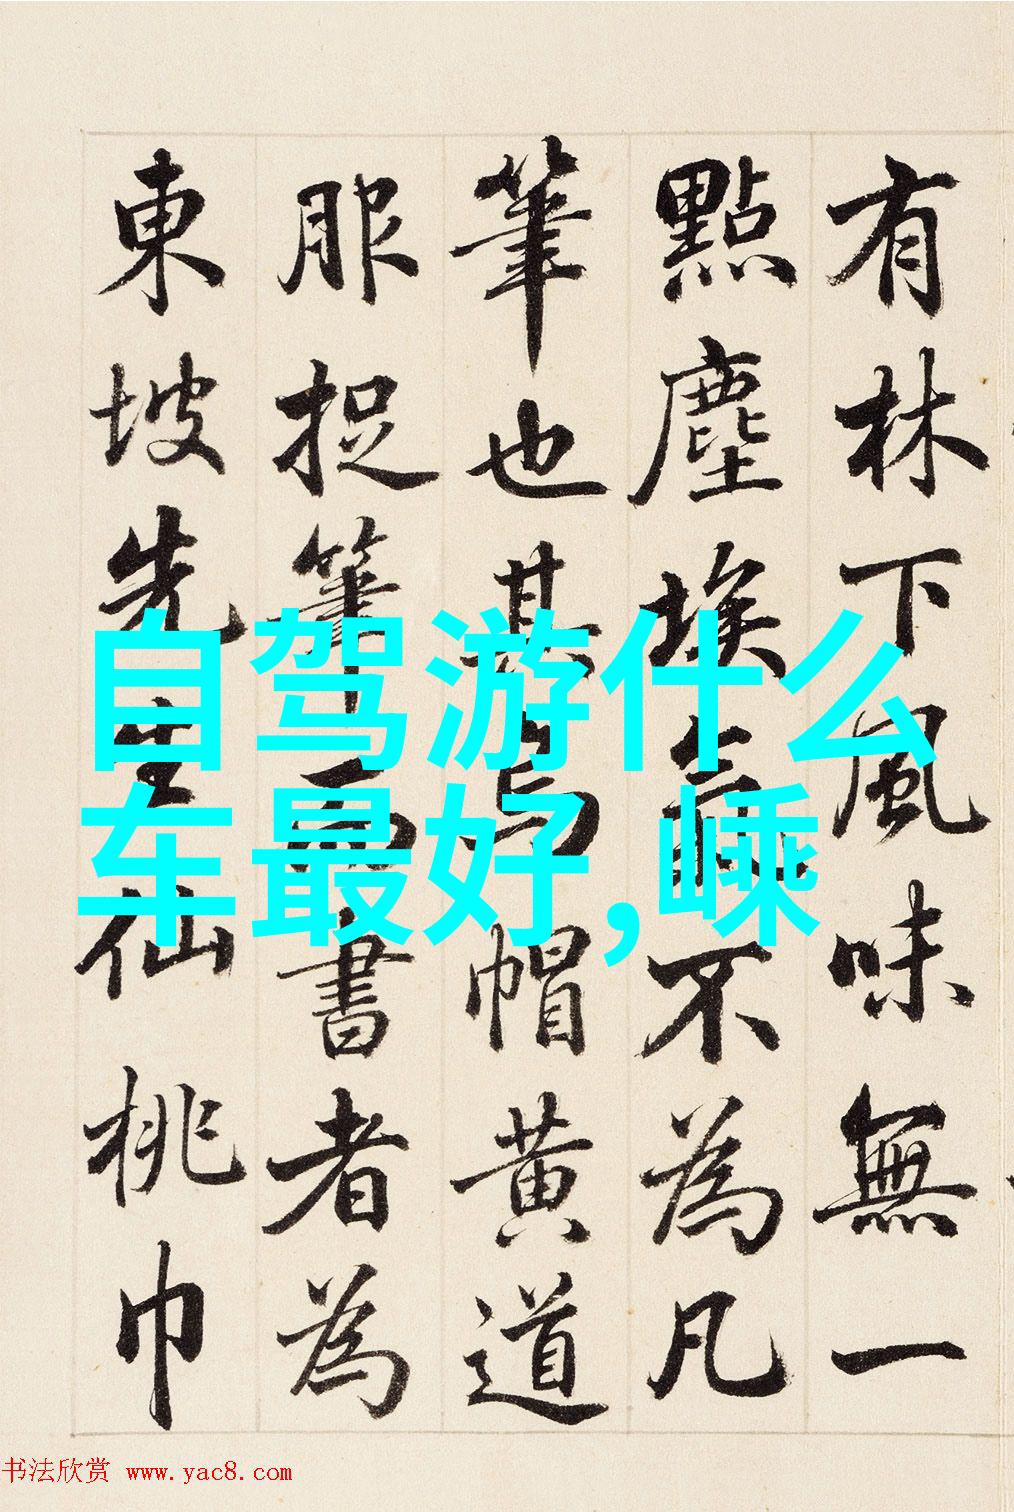 有林下風味無一
點塵埃氣不為凡
筆也其烏帽黄道
服捉筆而書者為
東坡先生仙桃巾
自驾游什么
车最好,嵊
书法欣赏 www.yac8.com